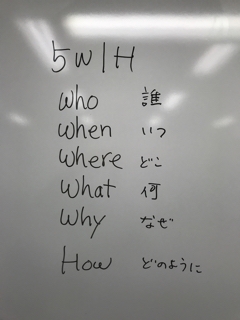 5W1H
Who 誰
When いつ
Where どこ
What 何
Why なぜ
How どのように